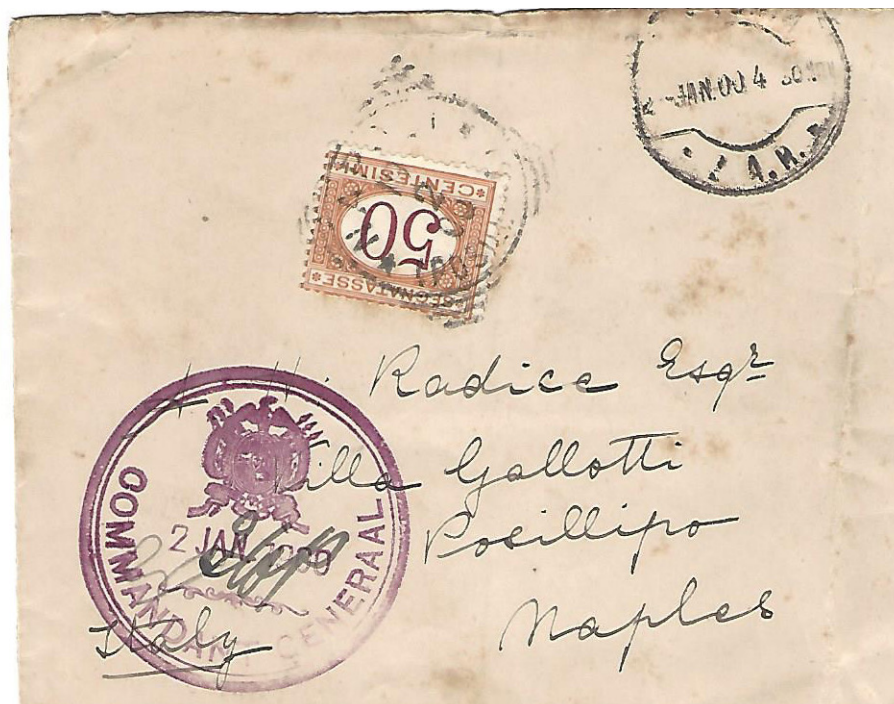 JAN.00.4
Z.A.R.
CENTESIMI
50
SEGNATASSE
Radice Esqr
Villa Gallotti
Posillipo
Naples
Italy
COMMANDANT GENERAAL
2 JAN 1900